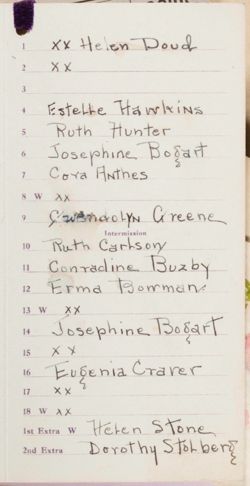 1 XX Helen Doud
2 XX
3
4 Estelle Hawkins
5 Ruth Hunter
6 Josephine Bogart
7 Cora Anthes
8 W XX
9 Gwendolyn Greene
Intermission
10 Ruth Carlson
11 Conradine Buzby
12 Erma Bowman
13 W XX
14 Josephine Bogart
15 XX
16 Eugenia Craver
17 XX
18 W XX
1st Extra W Helen Stone
2nd Extra Dorothy Stohberg